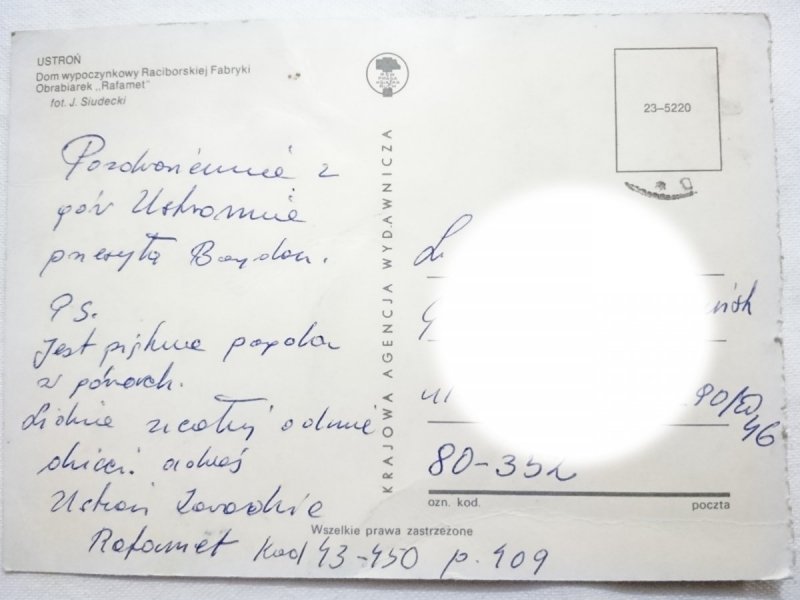 USTROŃ
Dom wypoczynkowy Raciborskiej Fabryki
Obrabiarek „Rafamet"
fot. J. Siudecki
Pozdrowienia z
gór Ustronia
przesyła Bogdan.
PS.
Jest piękna pogoda
w górach.
ode mnie
adres
Ustroń Zawodzie
Rafamet Kod 43-450 p. 409
KRAJOWA AGENCJA WYDAWNICZA
23–5220
ul
90/
46
80-352
ozn. kod.
poczta
Wszelkie prawa zastrzeżone